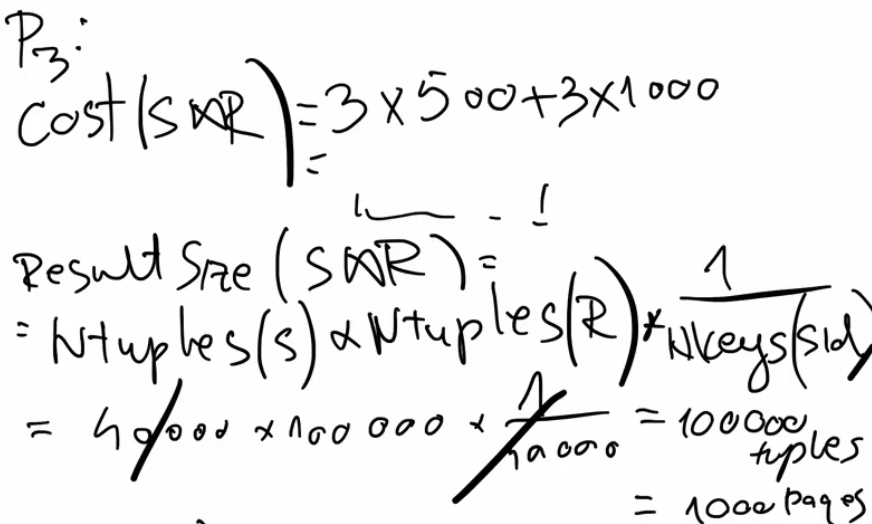 P3:
Cost(S⋈R) = 3×500+3×1000
=
Result Size (S⋈R) =
= Ntuples(S) × Ntuples(R) * 1/NKeys(sid)
= 40000 × 100 000 × 1/40000 = 100000 tuples
= 1000 pages